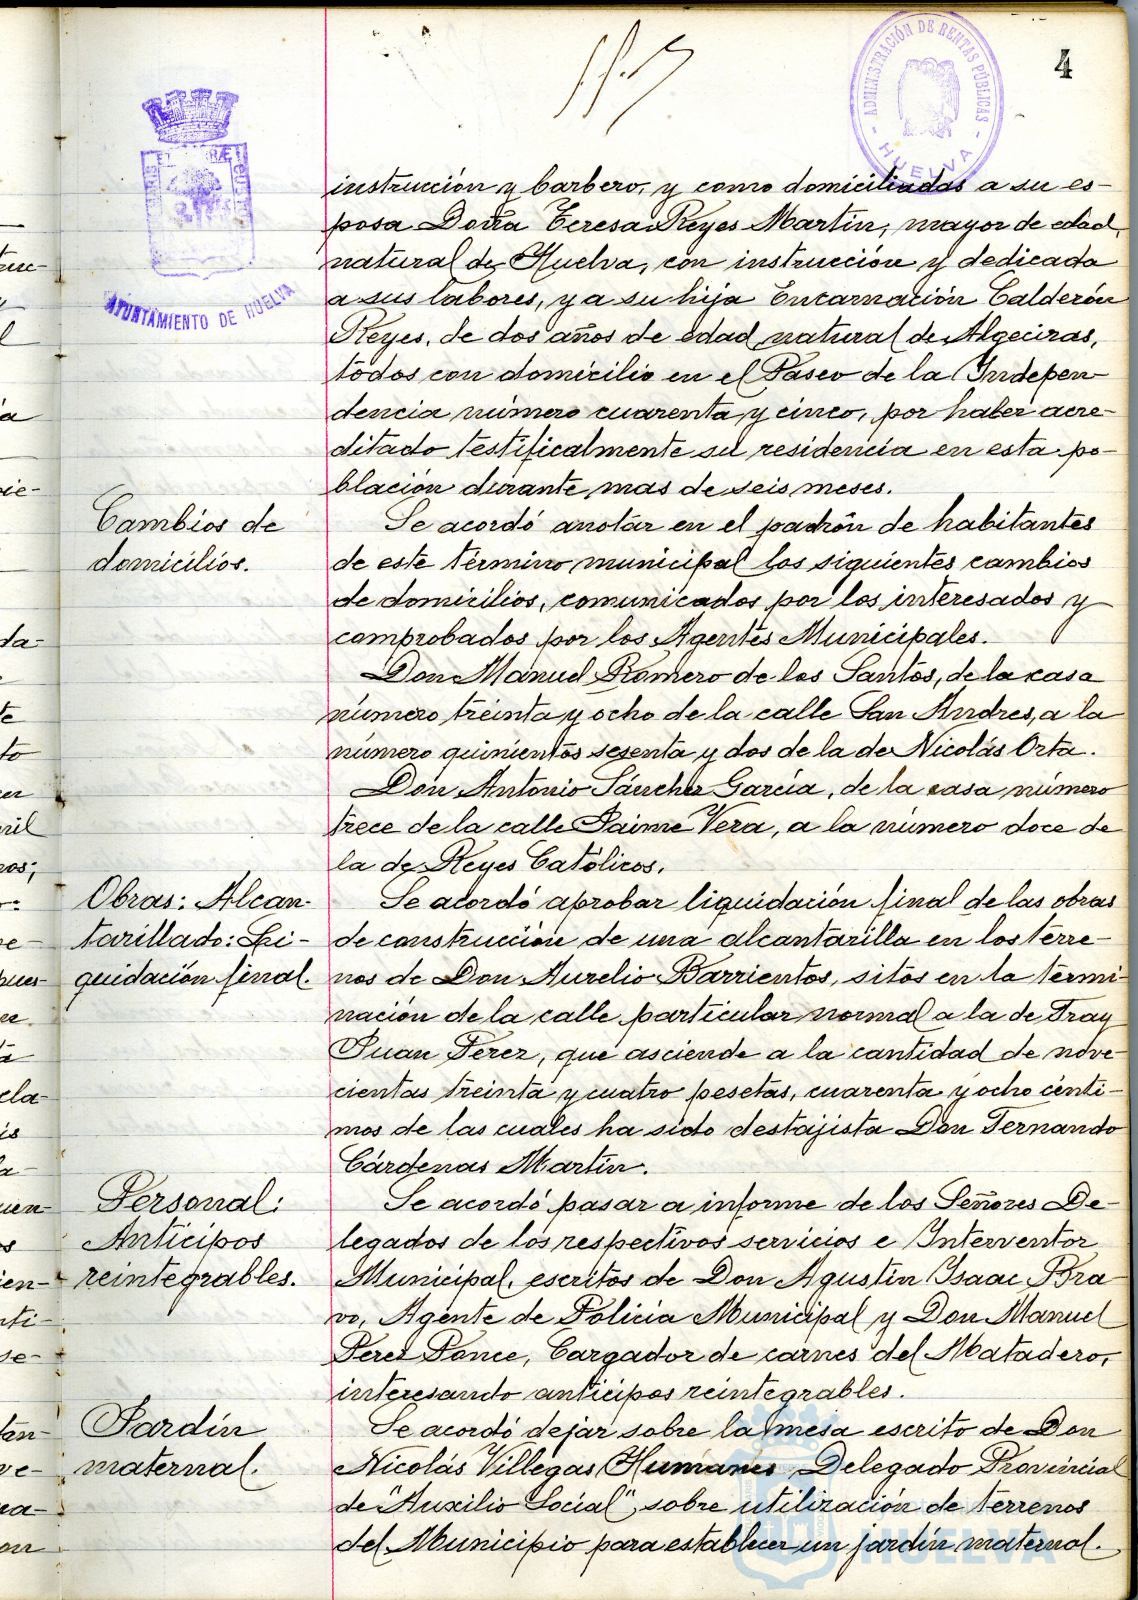 4
ADMINISTRACIÓN DE RENTAS PÚBLICAS
HUELVA
AYUNTAMIENTO DE HUELVA
instrucción y barbero, y como domiciliadas a su es-
posa Doña Teresa Reyes Martín, mayor de edad,
natural de Huelva, con instrucción y dedicada
a sus labores, y a su hija Encarnación Calderón
Reyes, de dos años de edad, natural de Algeciras,
todos con domicilio en el Paseo de la Indepen-
dencia número cuarenta y cinco, por haber acre-
ditado testificalmente su residencia en esta po-
blación durante mas de seis meses.
Cambios de
domicilios.
Se acordó anotar en el padrón de habitantes
de este término municipal los siguientes cambios
de domicilios, comunicados por los interesados y
comprobados por los Agentes Municipales.
Don Manuel Romero de los Santos, de la casa
número treinta y ocho de la calle San Andres, a la
número quinientos sesenta y dos de la de Nicolás Orta.
Don Antonio Sánchez García, de la casa número
trece de la calle Jaime Vera, a la número doce de
la de Reyes Católicos.
Obras: Alcan-
tarillado: Li-
quidación final.
Se acordó aprobar liquidación final de las obras
de construcción de una alcantarilla en los terre-
nos de Don Aurelio Barrientos, sitos en la termi-
nación de la calle particular normal a la de Fray
Juan Perez, que asciende a la cantidad de nove-
cientas treinta y cuatro pesetas, cuarenta y ocho cénti-
mos de las cuales ha sido destajista Don Fernando
Cárdenas Martín.
Personal:
Anticipos
reintegrables.
Se acordó pasar a informe de los Señores De-
legados de los respectivos servicios e Interventor
Municipal, escritos de Don Agustín Isaac Bra-
vo, Agente de Policía Municipal y Don Manuel
Perez Ponce, Cargador de carnes del Matadero,
interesando anticipos reintegrables.
Jardín
maternal.
Se acordó dejar sobre la mesa escrito de Don
Nicolás Villegas Humanes Delegado Provincial
de "Auxilio Social", sobre utilización de terrenos
del Municipio para establecer un jardín maternal.
HUELVA